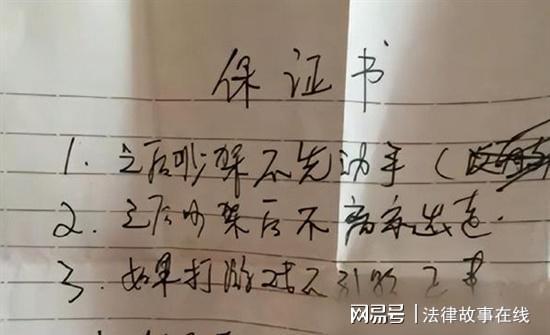 保证书
1. 之后吵架不先动手（
2. 之后吵架后不离家出走.
3. 如果打游戏不影响正事
网易号 | 法律故事在线